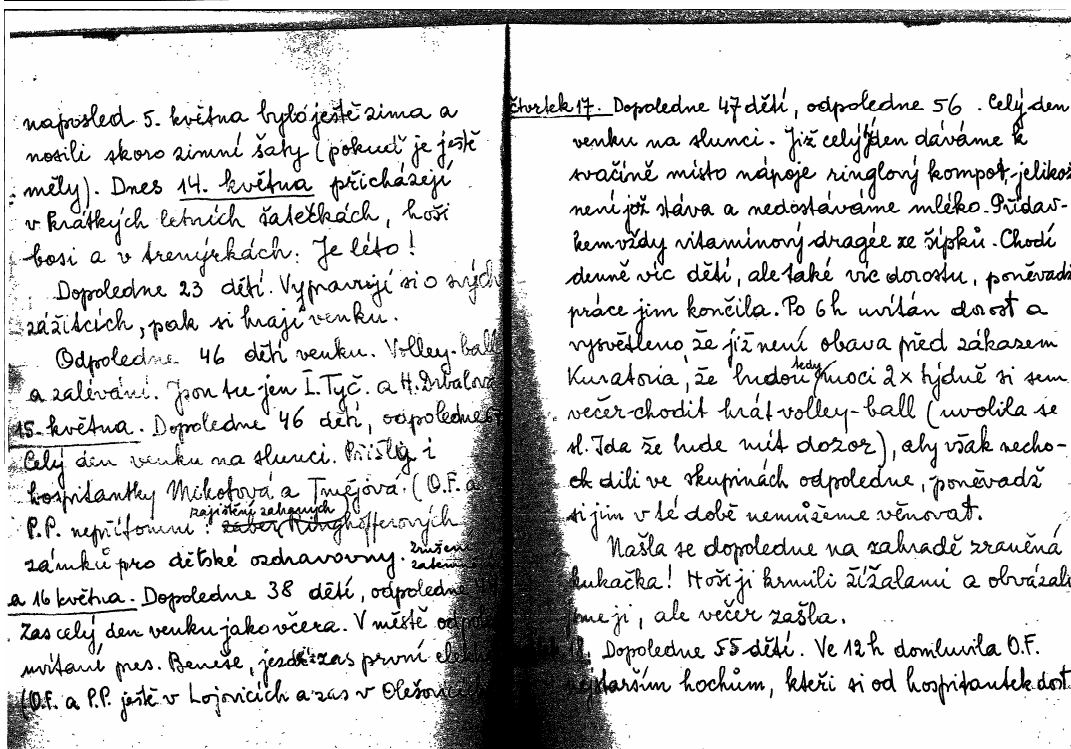 naposled 5. května bylo ještě zima a
nosili skoro zimní šaty (pokuď je ještě
měly). Dnes 14. května přicházejí
v krátkých letních šatečkách, hoši
bosi a v trenýrkách. Je léto!
Dopoledne 23 dětí. Vypravují si o svých
zážitcích, pak si hrají venku.
Odpoledne 46 dětí venku. Volley-ball
a zalévání. Jsou tu jen I. Tyč. a H. Drbalová
15. května. Dopoledne 46 dětí, odpoledne
Celý den venku na slunci. Přišly i
hospitantky Mikotová a Tmějová. (O.F. a
P.P. nepřítomni: zajištění zabraných)
zámků pro dětské ozdravovny. zrušení
a 16 května. Dopoledne 38 dětí, odpoledne
Zas celý den venku jako včera. V městě
uvítání pres. Beneše, jezdí zas první
(O.F. a P.P. ještě v Lojovicích a zas v
čtvrtek 17. Dopoledne 47 dětí, odpoledne 56. Celý den
venku na slunci. Již celý týden dáváme k
svačině místo nápoje ringlový kompot, jelikož
není již šťáva a nedostáváme mléko. Přídav-
kem vždy vitamínový dragée ze šípků. Chodí
denně víc dětí, ale také víc dorostu, poněvadž
práce jim končila. Po 6 h uvítán dorost a
vysvětleno, že již není obava před zákazem
Kuratoria, že budou tedy moci 2x týdně si sem
večer chodit hrát volley-ball (uvolila se
sl. Ida že bude mít dozor), aby však necho-
dili ve skupinách odpoledne, poněvadž
si jim v té době nemůžeme věnovat.
Našla se dopoledne na zahradě zraněná
kukačka! Hoši ji krmili žížalami a obvázali
jsme ji, ale večer zašla.
Dopoledne 55 dětí. Ve 12 h domluvila O.F.
nejstarším hochům, kteři si od hospitantek dost